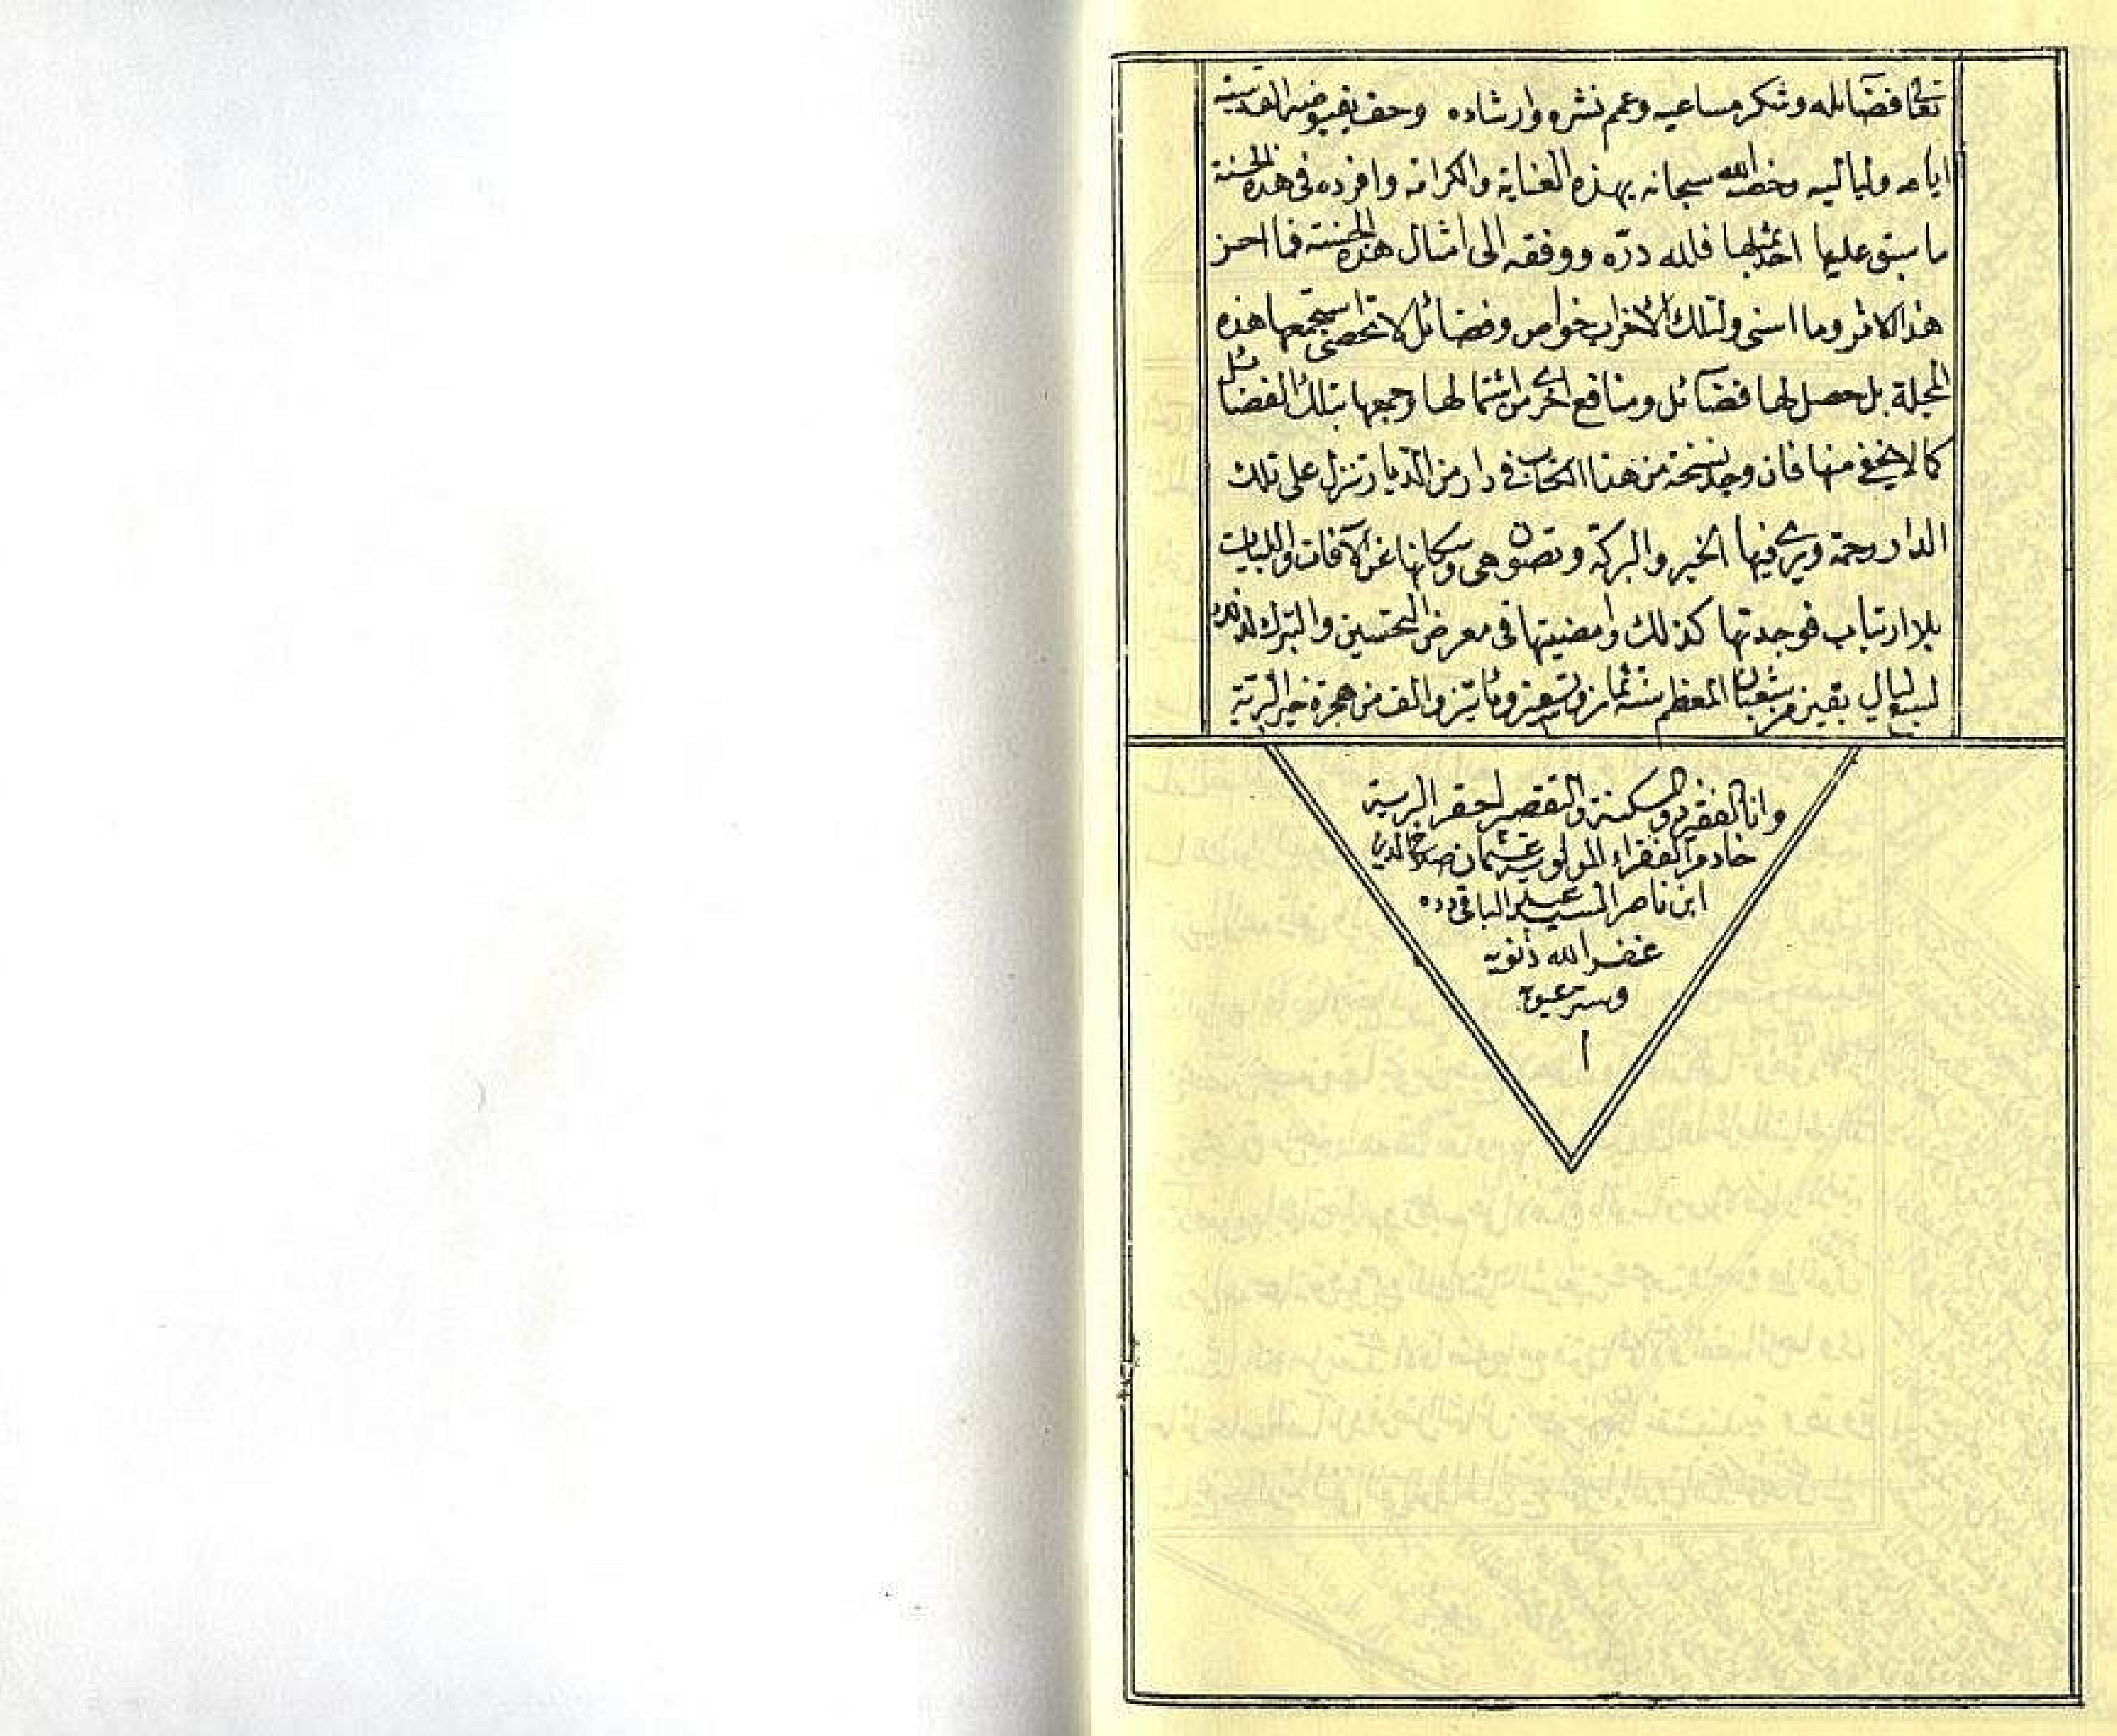 تعالى فضائله وشكر مساعيه وعم نشره وارشاده وحف بفيوضه القدسية
ايامه ولياليه وخصه الله سبحانه بهذه العناية والكرامة وافرده فى هذه الحسنة
ما سبق عليها احد بمثلها فلله درّه ووفقه الى امثال هذه الحسنة فما احسن
هذا الاثر وما اسنى ولتلك الاحزاب خواص وفضائل لا تحصى استجمعها هذه
المجلة بل حصل لها فضآئل ومنافع اخرى من اشتمالها وجمعها بتلك الفضائل
كما لا يخفى منها فان وجد نسخة من هذا الكتاب في دار من الديار تنزل على تلك
الدار رحمة ويرى فيها الخير والبركة وتصون هى وسكانها عن الآفات والبليات
بلا ارتياب فوجدتها كذلك وامضيتها فى معرض التحسين والتبرك لذلك
لسبع ليال بقين من شعبان المعظم سنة ثمان وتسعين ومأتين والف من هجرة خير البرية
وانا الفقير والمسكنة والتقصير احقر البرية
خادم الفقراء المولوية عثمان صلاح الدين
ابن ناصر السيد عبد الباقى دده
غفر الله ذنوبه
وستر عيوبه